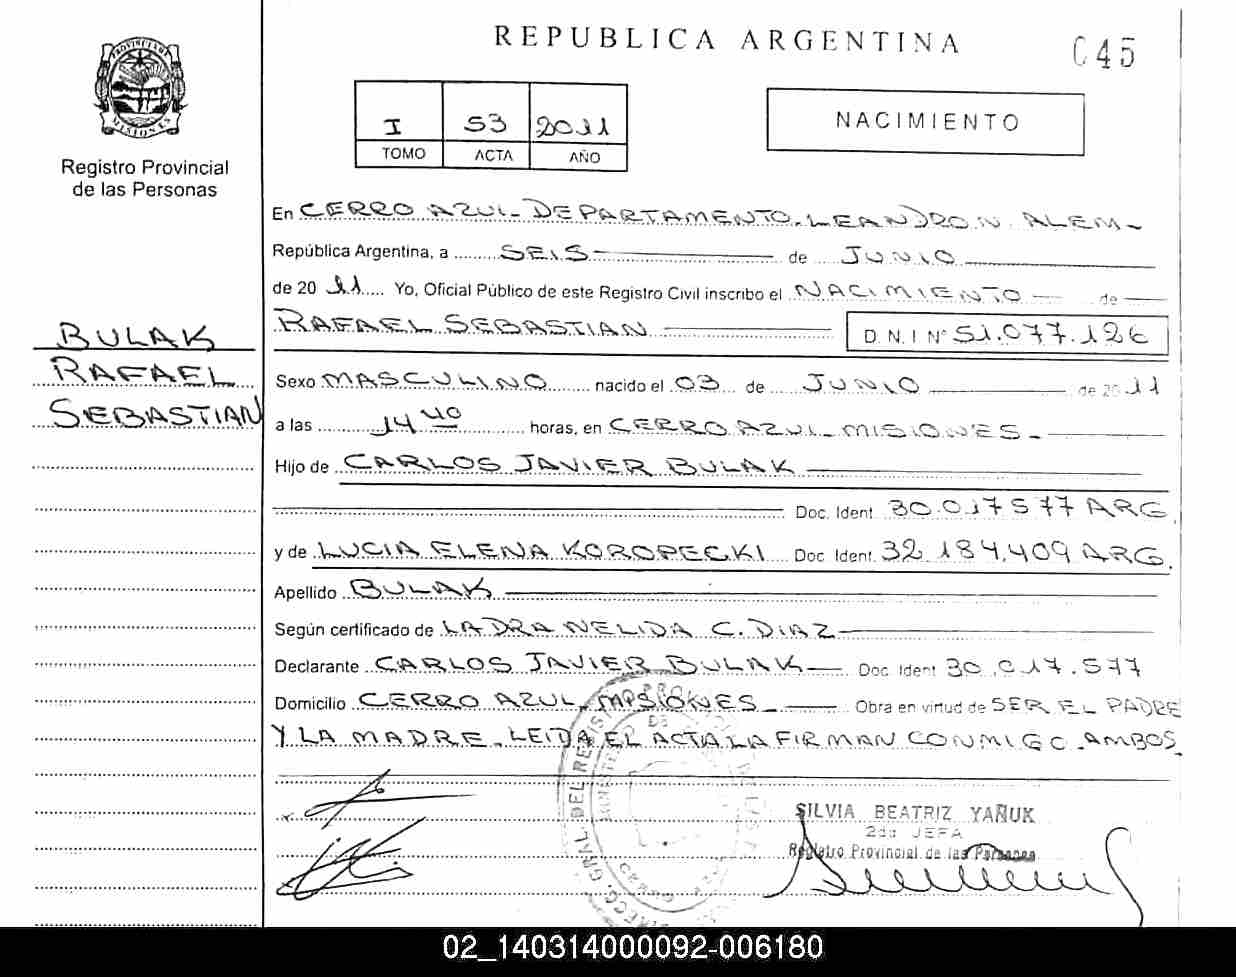 REPUBLICA ARGENTINA
045
PROVINCIA DE
MISIONES
Registro Provincial
de las Personas
I 53 2011
TOMO ACTA AÑO
NACIMIENTO
En CERRO AZUL - DEPARTAMENTO. LEANDRO N. ALEM -
República Argentina, a SEIS de JUNIO
de 20 11 Yo, Oficial Público de este Registro Civil inscribo el NACIMIENTO de
RAFAEL SEBASTIAN D.N.I Nº 51.077.126
BULAK
RAFAEL
SEBASTIAN
Sexo MASCULINO nacido el 03 de JUNIO de 20 11
a las 14 40 horas, en CERRO AZUL - MISIONES -
Hijo de CARLOS JAVIER BULAK
Doc. Ident. 30.017577 ARG
y de LUCIA ELENA KOROPECKI Doc. Ident. 32.184.409 ARG.
Apellido BULAK
Según certificado de LA DRA NELIDA C. DIAZ
Declarante CARLOS JAVIER BULAK Doc. Ident. 30.017.577
Domicilio CERRO AZUL, MISIONES - Obra en virtud de SER EL PADRE
Y LA MADRE. LEIDA EL ACTA LA FIRMAN CONMIGO AMBOS
SILVIA BEATRIZ YAÑUK
2da JEFA
Registro Provincial de las Personas
02_140314000092-006180